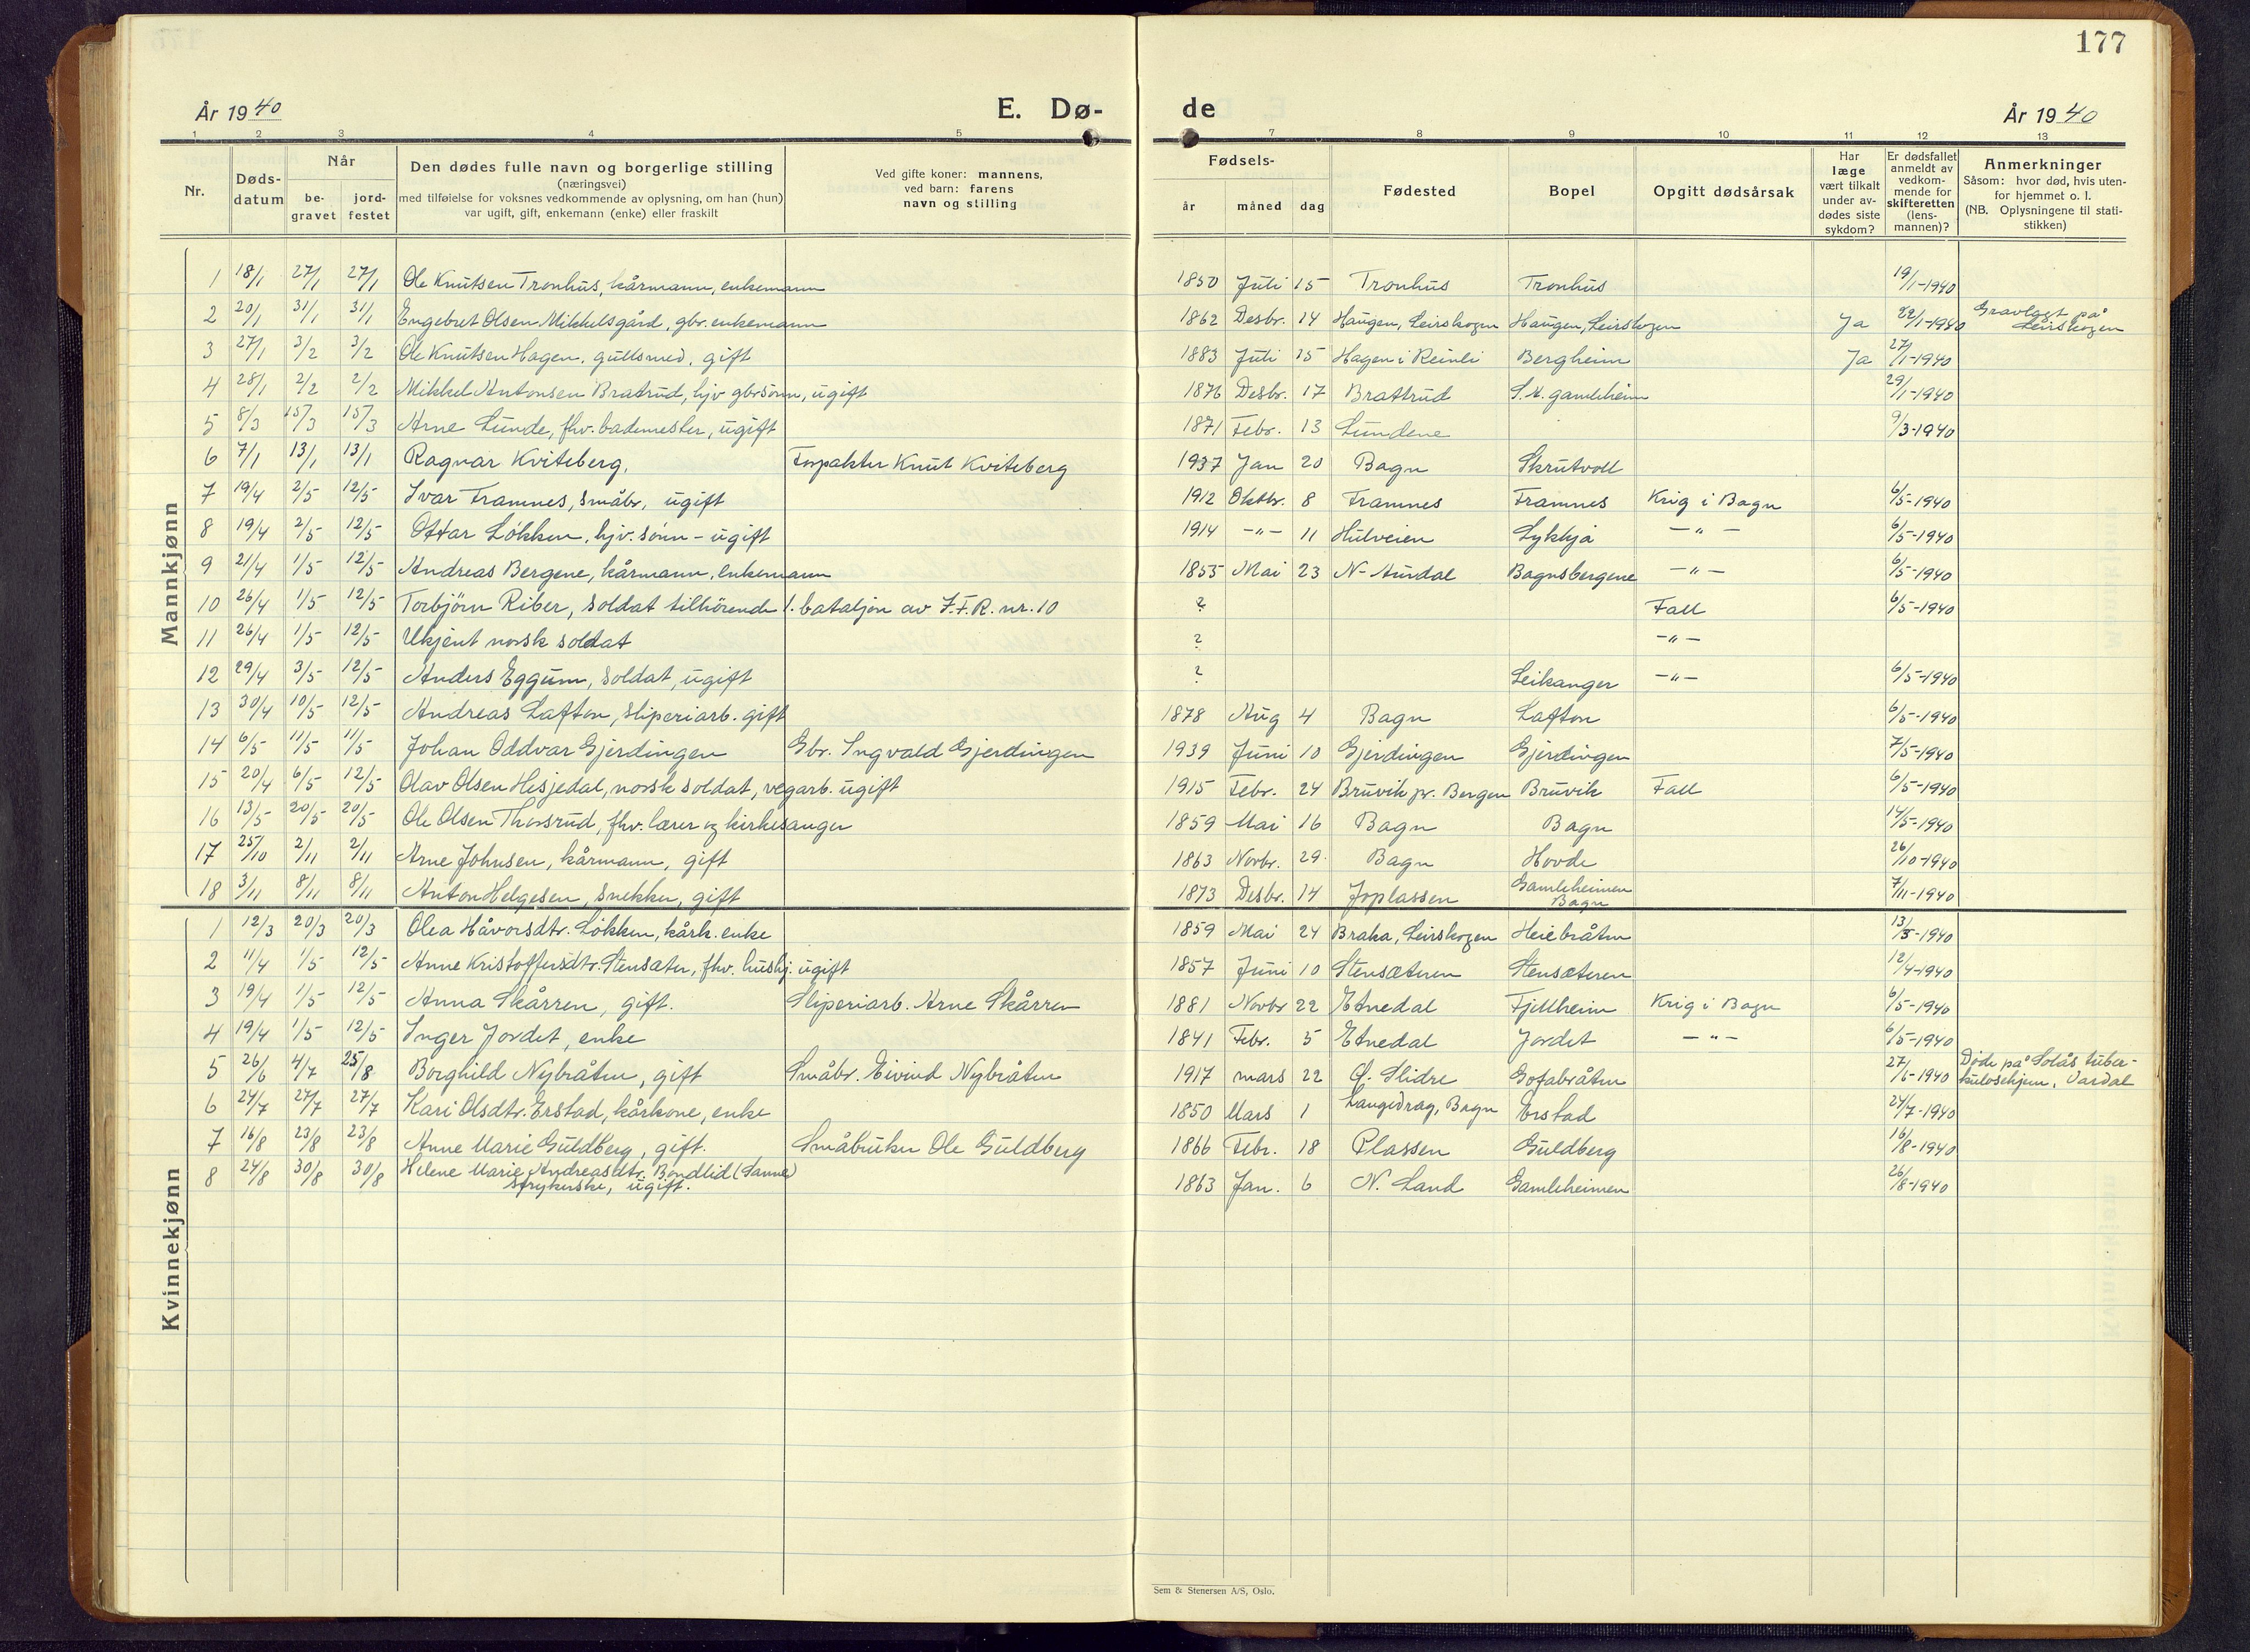 177
År 1940 E. Dø- de År 1940
1 2 3 4 5 7 8 9 10 11 12 13
Nr. Døds-datum Når be-gravet jord-festet Den dødes fulle navn og borgerlige stilling (næringsvei) med tilføielse for voksnes vedkommende av oplysning, om han (hun) var ugift, gift, enkemann (enke) eller fraskilt Ved gifte koner: mannens, ved barn: farens navn og stilling Fødsels- år måned dag Fødested Bopel Opgitt dødsårsak Har læge vært tilkalt under av-dødes siste sykdom? Er dødsfallet anmeldt av vedkom-mende for skifteretten (lens-mannen)? Anmerkninger Såsom: hvor død, hvis uten-for hjemmet o. l. (NB. Oplysningene til stati-stikken)
Mannkjønn
1 18/1 27/1 27/1 Ole Knutsen Tronhus, kårmann, enkemann 1850 Juli 15 Tronhus Tronhus 19/1-1940
2 20/1 31/1 31/1 Engebret Olsen Mikkelsgård, gbr. enkemann 1862 Desbr. 14 Haugen, Leirskogen Haugen, Leirskogen Ja 22/1-1940 Gravlagt på Leirskogen
3 27/1 3/2 3/2 Ole Knutsen Hagen, gullsmed, gift 1883 Juli 15 Hagen i Reinli Bergheim Ja 27/1-1940
4 28/1 2/2 2/2 Mikkel Antonsen Bratrud, hjv gbrsønn, ugift 1876 Desbr. 17 Brattrud S. A. gamleheim 29/1-1940
5 8/3 15/3 15/3 Arne Lunde, fhv. bademester, ugift 1871 Febr. 13 Lundene 9/3-1940
6 7/1 13/1 13/1 Ragnar Kviteberg, Forpakter Knut Kviteberg 1937 Jan 20 Bagn Skrutvoll
7 19/4 2/5 12/5 Ivar Framnes, småbr, ugift 1912 Oktbr. 8 Framnes Framnes Krig i Bagn 6/5-1940
8 19/4 2/5 12/5 Ottar Løkken, hjv. sønn - ugift 1914 -"- 11 Hulveien Lykkja -"- 6/5-1940
9 21/4 1/5 12/5 Andreas Bergene, kårmann, enkemann 1855 Mai 23 N-Aurdal Bagnsbergene -"- 6/5-1940
10 26/4 1/5 12/5 Torbjörn Riber, soldat tilhörende 1. bataljon av I.F.R. nr. 10 ? Fall 6/5-1940
11 26/4 1/5 12/5 Ukjent norsk soldat ? -"-
12 29/4 3/5 12/5 Anders Eggum, soldat, ugift ? Leikanger -"- 6/5-1940
13 30/4 10/5 12/5 Andreas Lafton, sliperiarb. gift 1878 Aug 4 Bagn Lafton 6/5-1940
14 6/5 11/5 11/5 Johan Oddvar Gjerdingen Gbr. Ingvald Gjerdingen 1939 Juni 10 Gjerdingen Gjerdingen 7/5-1940
15 20/4 6/5 12/5 Olav Olsen Hesjedal, norsk soldat, vegarb. ugift 1915 Febr. 24 Bruvik pr. Bergen Bruvik Fall 6/5-1940
16 13/5 20/5 20/5 Ole Olsen Thorsrud, fhv. lærer og kirkesanger 1859 Mai 16 Bagn Bagn 14/5-1940
17 25/10 2/11 2/11 Arne Johnsen, kårmann, gift 1863 Novbr. 29. Bagn Hovde 26/10-1940
18 3/11 8/11 8/11 Anton Helgesen, snekker, gift 1873 Desbr. 14 Joplassen Gamleheimen Bagn 7/11-1940
Kvinnekjønn
1 12/3 20/3 20/3 Olea Håvorsdtr. Løkken, kårk. enke 1859 Mai 24 Braka, Leirskogen Heiebråten 13/3-1940
2 11/4 1/5 12/5 Anne Kristoffersdtr. Stensæter, fhv. hushj. ugift 1857 Juni 10 Stensæteren Stensæteren 12/4-1940
3 19/4 1/5 12/5 Anna Skårren, gift. Sliperiarb. Arne Skårren 1881 Novbr 22 Etnedal Fjellheim Krig i Bagn 6/5-1940
4 19/4 1/5 12/5 Inger Jordet, enke 1841 Febr. 5 Etnedal Jordet -"- 6/5-1940
5 26/6 4/7 25/8 Borghild Nybråten, gift Småbr. Eivind Nybråten 1917 mars 22 Ø. Slidre Gofabråten 27/6-1940 Døde på Solås tuber-kulosehjem, Vardal
6 24/7 27/7 27/7 Kari Olsdtr. Erstad, kårkone, enke 1850 Mars 1 Langedrag, Bagn Erstad 24/7-1940
7 16/8 23/8 23/8 Anne Marie Guldberg, gift. Småbruker Ole Guldberg 1866 Febr. 18 Plassen Guldberg 16/8-1940
8 24/8 30/8 30/8 Helene Marie Andreasdtr. Bondlid (Sanne) strykerske, ugift. 1863 Jan. 6 N. Land Gamleheimen 26/8-1940
Sem & Stenersen A/S, Oslo.